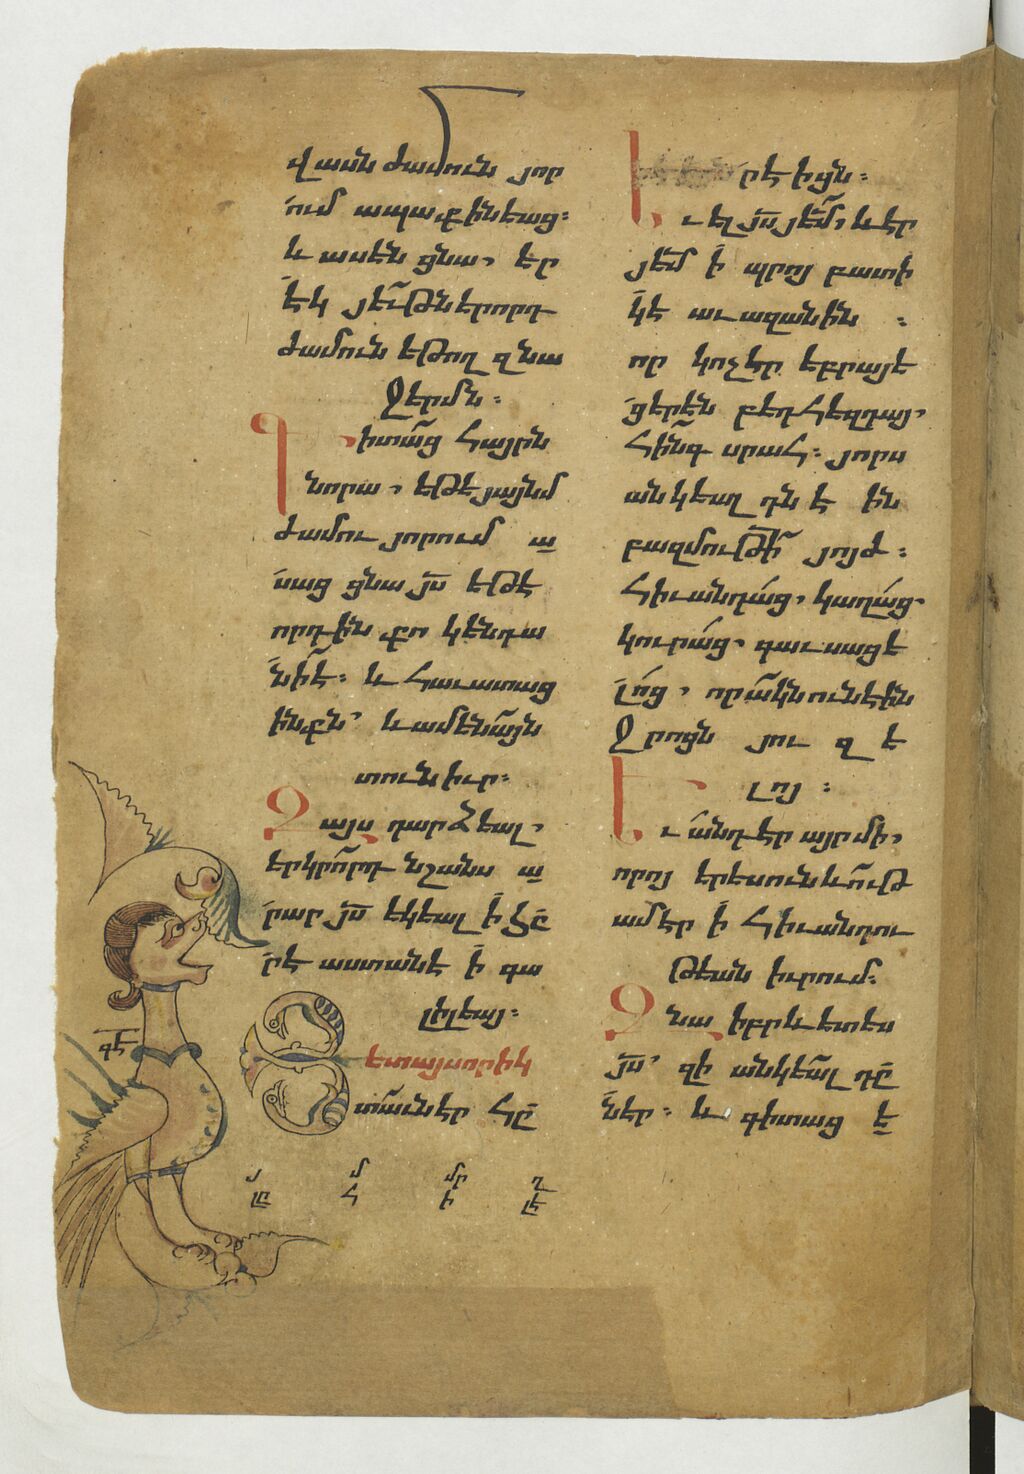 վասն ժամուն յոր
ում ապաքինեաց։
և ասեն ցնա՝ եր
էկ յեւթներորդ
ժամուն եթող զնա
Ջերմն։
Գիտաց հայրն
նորա՝ եթե յայնմ
ժամու յորում ա
սաց ցնա յս եթէ
որդին քո կենդա
նի է։ և հաւատաց
ինքն՝ և ամենայն
տուն իւր։
Զայս դարձեալ՝
երկրորդ նշանս ա
րար յս եկեալ ի հը
րէ աստանէ ի գա
լիլեայ։
Յետ այսորիկ
տաւներ հը
րէիցն։
Եւ ել յս յեմ՝ և էր
յեմ ի պրոյ բատի
կէ աւազանին ։
որ կոչէր եբրայե
ցերէն բեդհեզդայ՝
հինգ սրահ։ յորս
անկեալ դնէ ին
բազմութի յոյժ։
հիւանդաց՝ կաղաց՝
կուրաց՝ գաւսացե
լոց՝ որ ակն ունէին
Ջրոյն յու զ ե
լոյ ։
Եւ անդ էր այր մի՝
որոյ երեսուն և ութ
ամ էր ի հիւանդու
թեան իւրում։
Զնա իբրև ետես
յս՝ զի անկեալ դը
ներ։ և գիտաց է
գէ
յ մ մր ղ
լը հ ի լէ